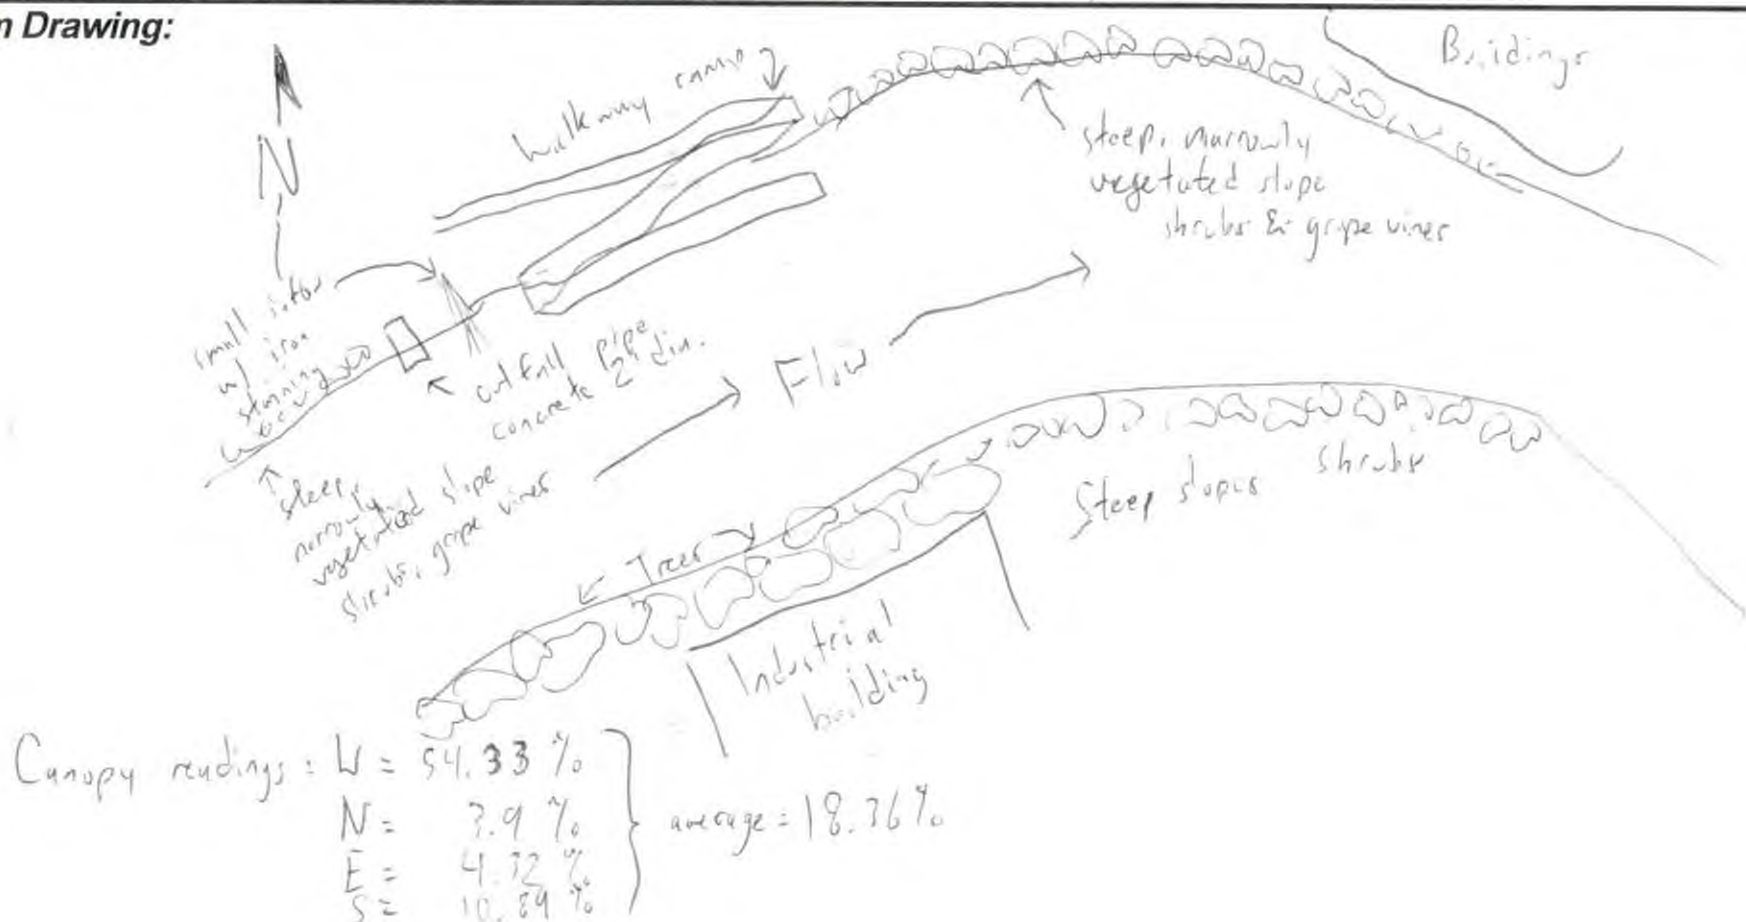 n Drawing:
N
Walkway ramp
Buildings
steep, narrowly
vegetated slope
shrubs & grape vines
small
w/ iron
staining
outfall pipe
concrete 2" dia.
Flow
steep,
narrowly
vegetated slope
shrubs, grape vines
Trees
Steep slopes
shrubs
Industrial
building
Canopy readings: W = 54.33 %
N = 3.9 %
E = 4.32 %
S = 10.89 %
average = 18.36%